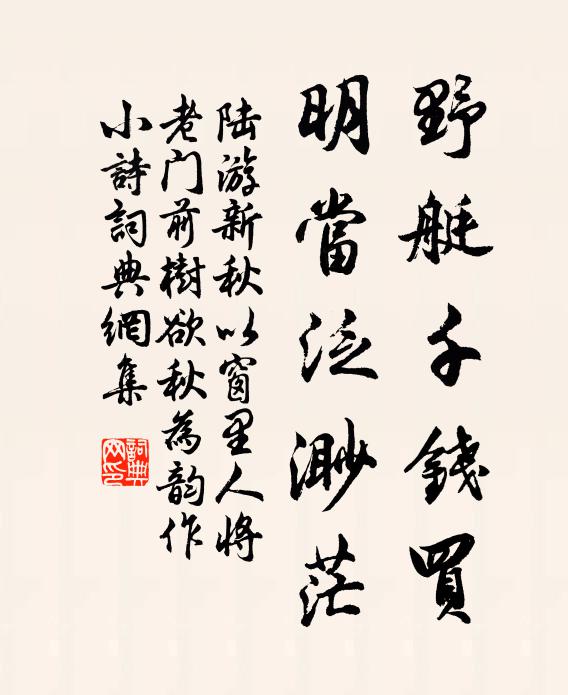 野艇千錢買
明當泛渺茫
陆游新秋以窗里人将
老门前樹欲秋為韵作
小詩詞典網集
詞典
网印